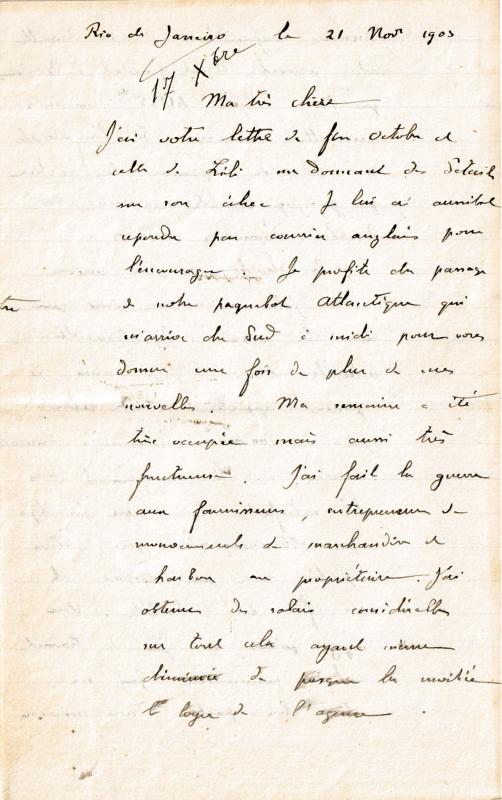 Rio de Janeiro le 21 Novr 1903
17 Xbre
Ma très chère
J'ai votre lettre de fin octobre et
celle de Lili me donnant des détails
sur son échec. Je lui ai aussitôt
répondu par courrier anglais pour
l'encourager. Je profite du passage
de notre paquebot Atlantique qui
m'arrive du Sud à midi pour vous
donner une fois de plus de mes
nouvelles. Ma semaine a été
très occupée mais aussi très
fructueuse. J'ai fait la guerre
aux fournisseurs, entrepreneurs de
mouvements de marchandises et
charbon au propriétaire. J'ai
obtenu des rabais considérables
sur tout cela ayant même
diminué de presque la moitié
le loyer de l'agence.